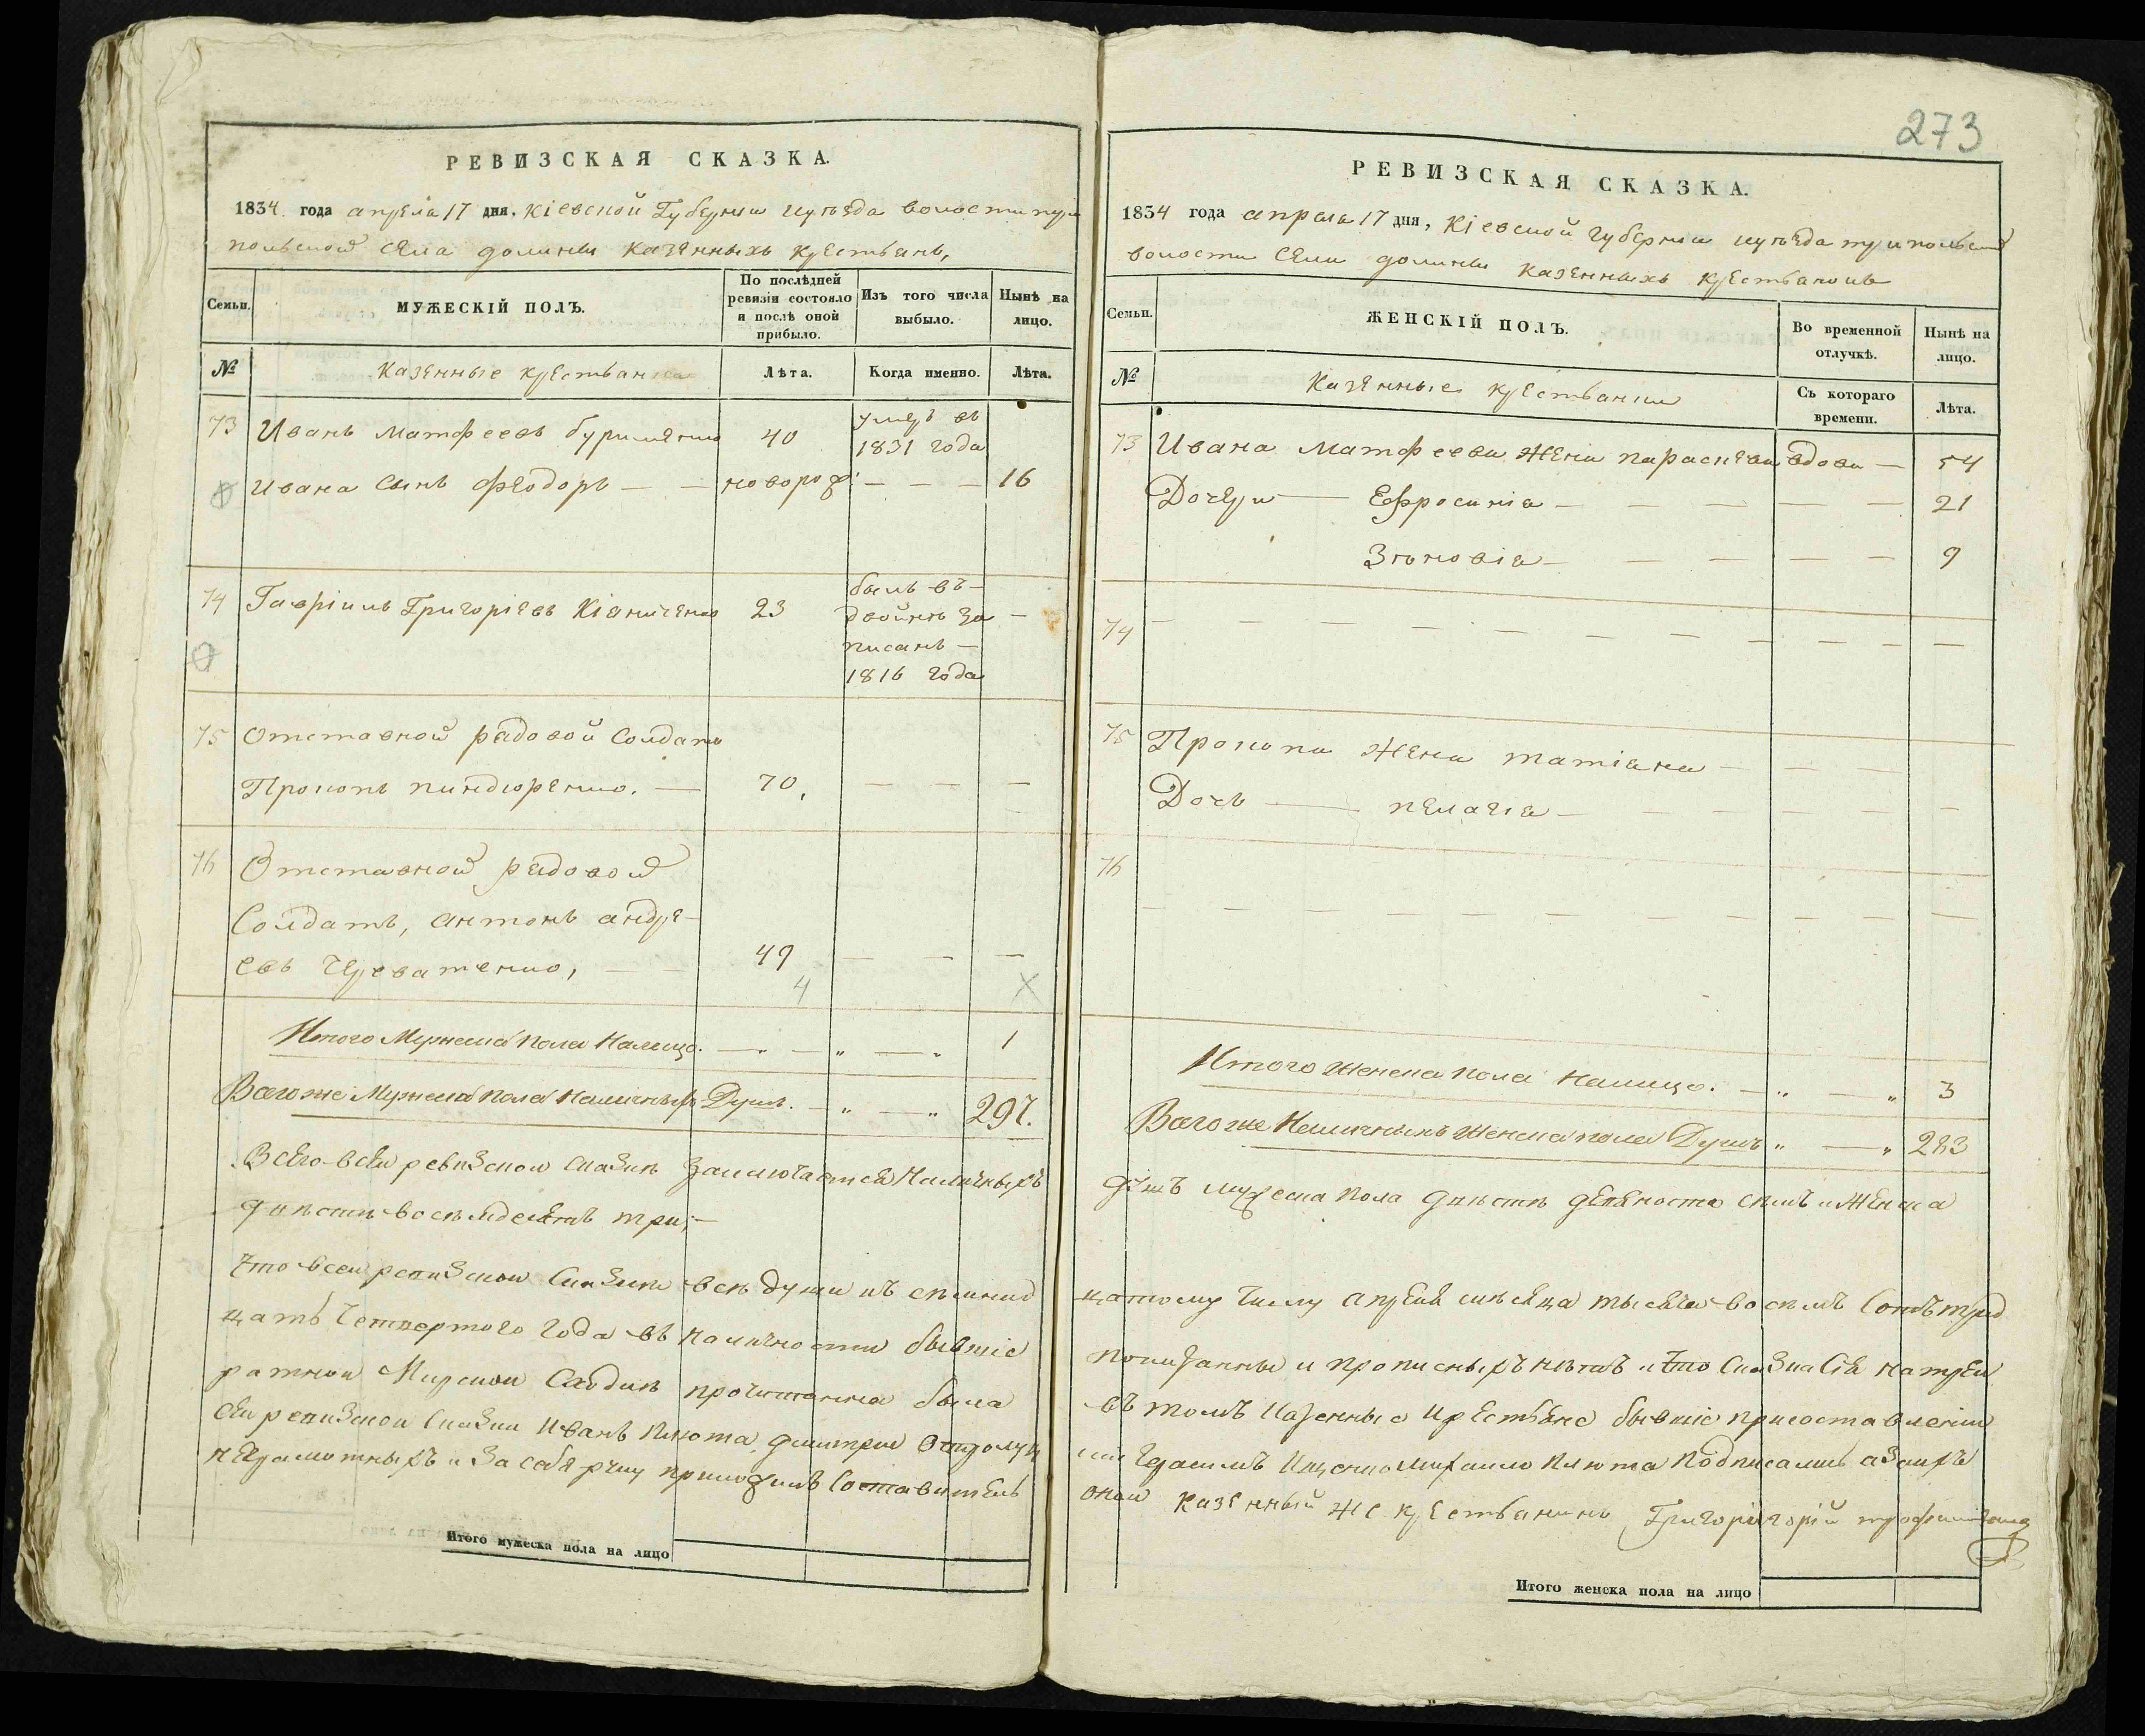 273
РЕВИЗСКАЯ СКАЗКА.
1834 года апреля 17 дня. Кіевской Губерніи иуезда волости три
польской села долины казенныхъ крестьянъ,
Семьи.
МУЖЕСКІЙ ПОЛЪ.
По послѣдней ревизіи состояло и послѣ оной прибыло.
Изъ того числа выбыло.
Нынѣ на лицо.
№
Казенные крестьяне
Лѣта.
Когда именно.
Лѣта.
73 Иванъ Матфеевъ 40 умеръ въ 1831 года
Ивана сынъ Феодоръ — — новорож: — — — 16
74 Гавріилъ Григоріевъ Кіяниченко 23 былъ въ- двойнѣ за писанъ — 1816 года —
75 Отставной рядовой Солдатъ
Прокопъ пиндюренко. — 70, — — —
76 Отставной рядовой
Солдатъ, антонъ андре-
евъ Череватенко, — — 49 — — —
4 X
Итого Мужеска пола Налицо. — „ — „ — „ 1
Всего же Мужеска пола Наличныхъ Душъ. — „ — „ 297.
Всего всей ревизской сказкѣ заключается Наличныхъ
двѣсти восемдесятъ три;—
Что всей ревизской Сказки всѣ души къ семнад
цать Четвертого года въ наличности бывшіе
Мирской Сходкѣ прочитанна была
сей ревизской Сказки Иванъ Плюта, дмитрій
неграмотныхъ и За себя руку приложилъ Составитель
Итого мужеска пола на лицо
РЕВИЗСКАЯ СКАЗКА.
1834 года апреля 17 дня, Кіевской губерніи иуезда трипольской
волости Села долины казенныхъ крестьянокъ
Семьи.
ЖЕНСКІЙ ПОЛЪ.
Во временной отлучкѣ.
Нынѣ на лицо.
№
Казенные крестьянки
Съ котораго времени.
Лѣта.
73 Ивана Матфеева Жена параскева вдова — 54
Дочери — Ефросинія — — — — — 21
Зѣновія — — — — — 9
74 — — — — — — — — — — — —
75 Прокопа Жена татіана — — —
Дочь — пелагія — — — — — —
76
— — — — — — — — — — —
Итого Женска пола налицо. — „ — „ 3
Всего же Наличныхъ Женска пола Душъ „ — „ 283
душъ мужеска пола двѣстѣ девяносто семъ и Женска
цатому числу апреля мѣсяца тысяча восемъ Сотъ трид
показанны и прописныхъ нѣтъ и что Сказка Сія на
въ томъ Казенные Крестьяне бывшіе при составленіи
Герасимъ Михаило Плюта Подписались а за ихъ
оной казенный же крестьянинъ
Итого женска пола на лицо